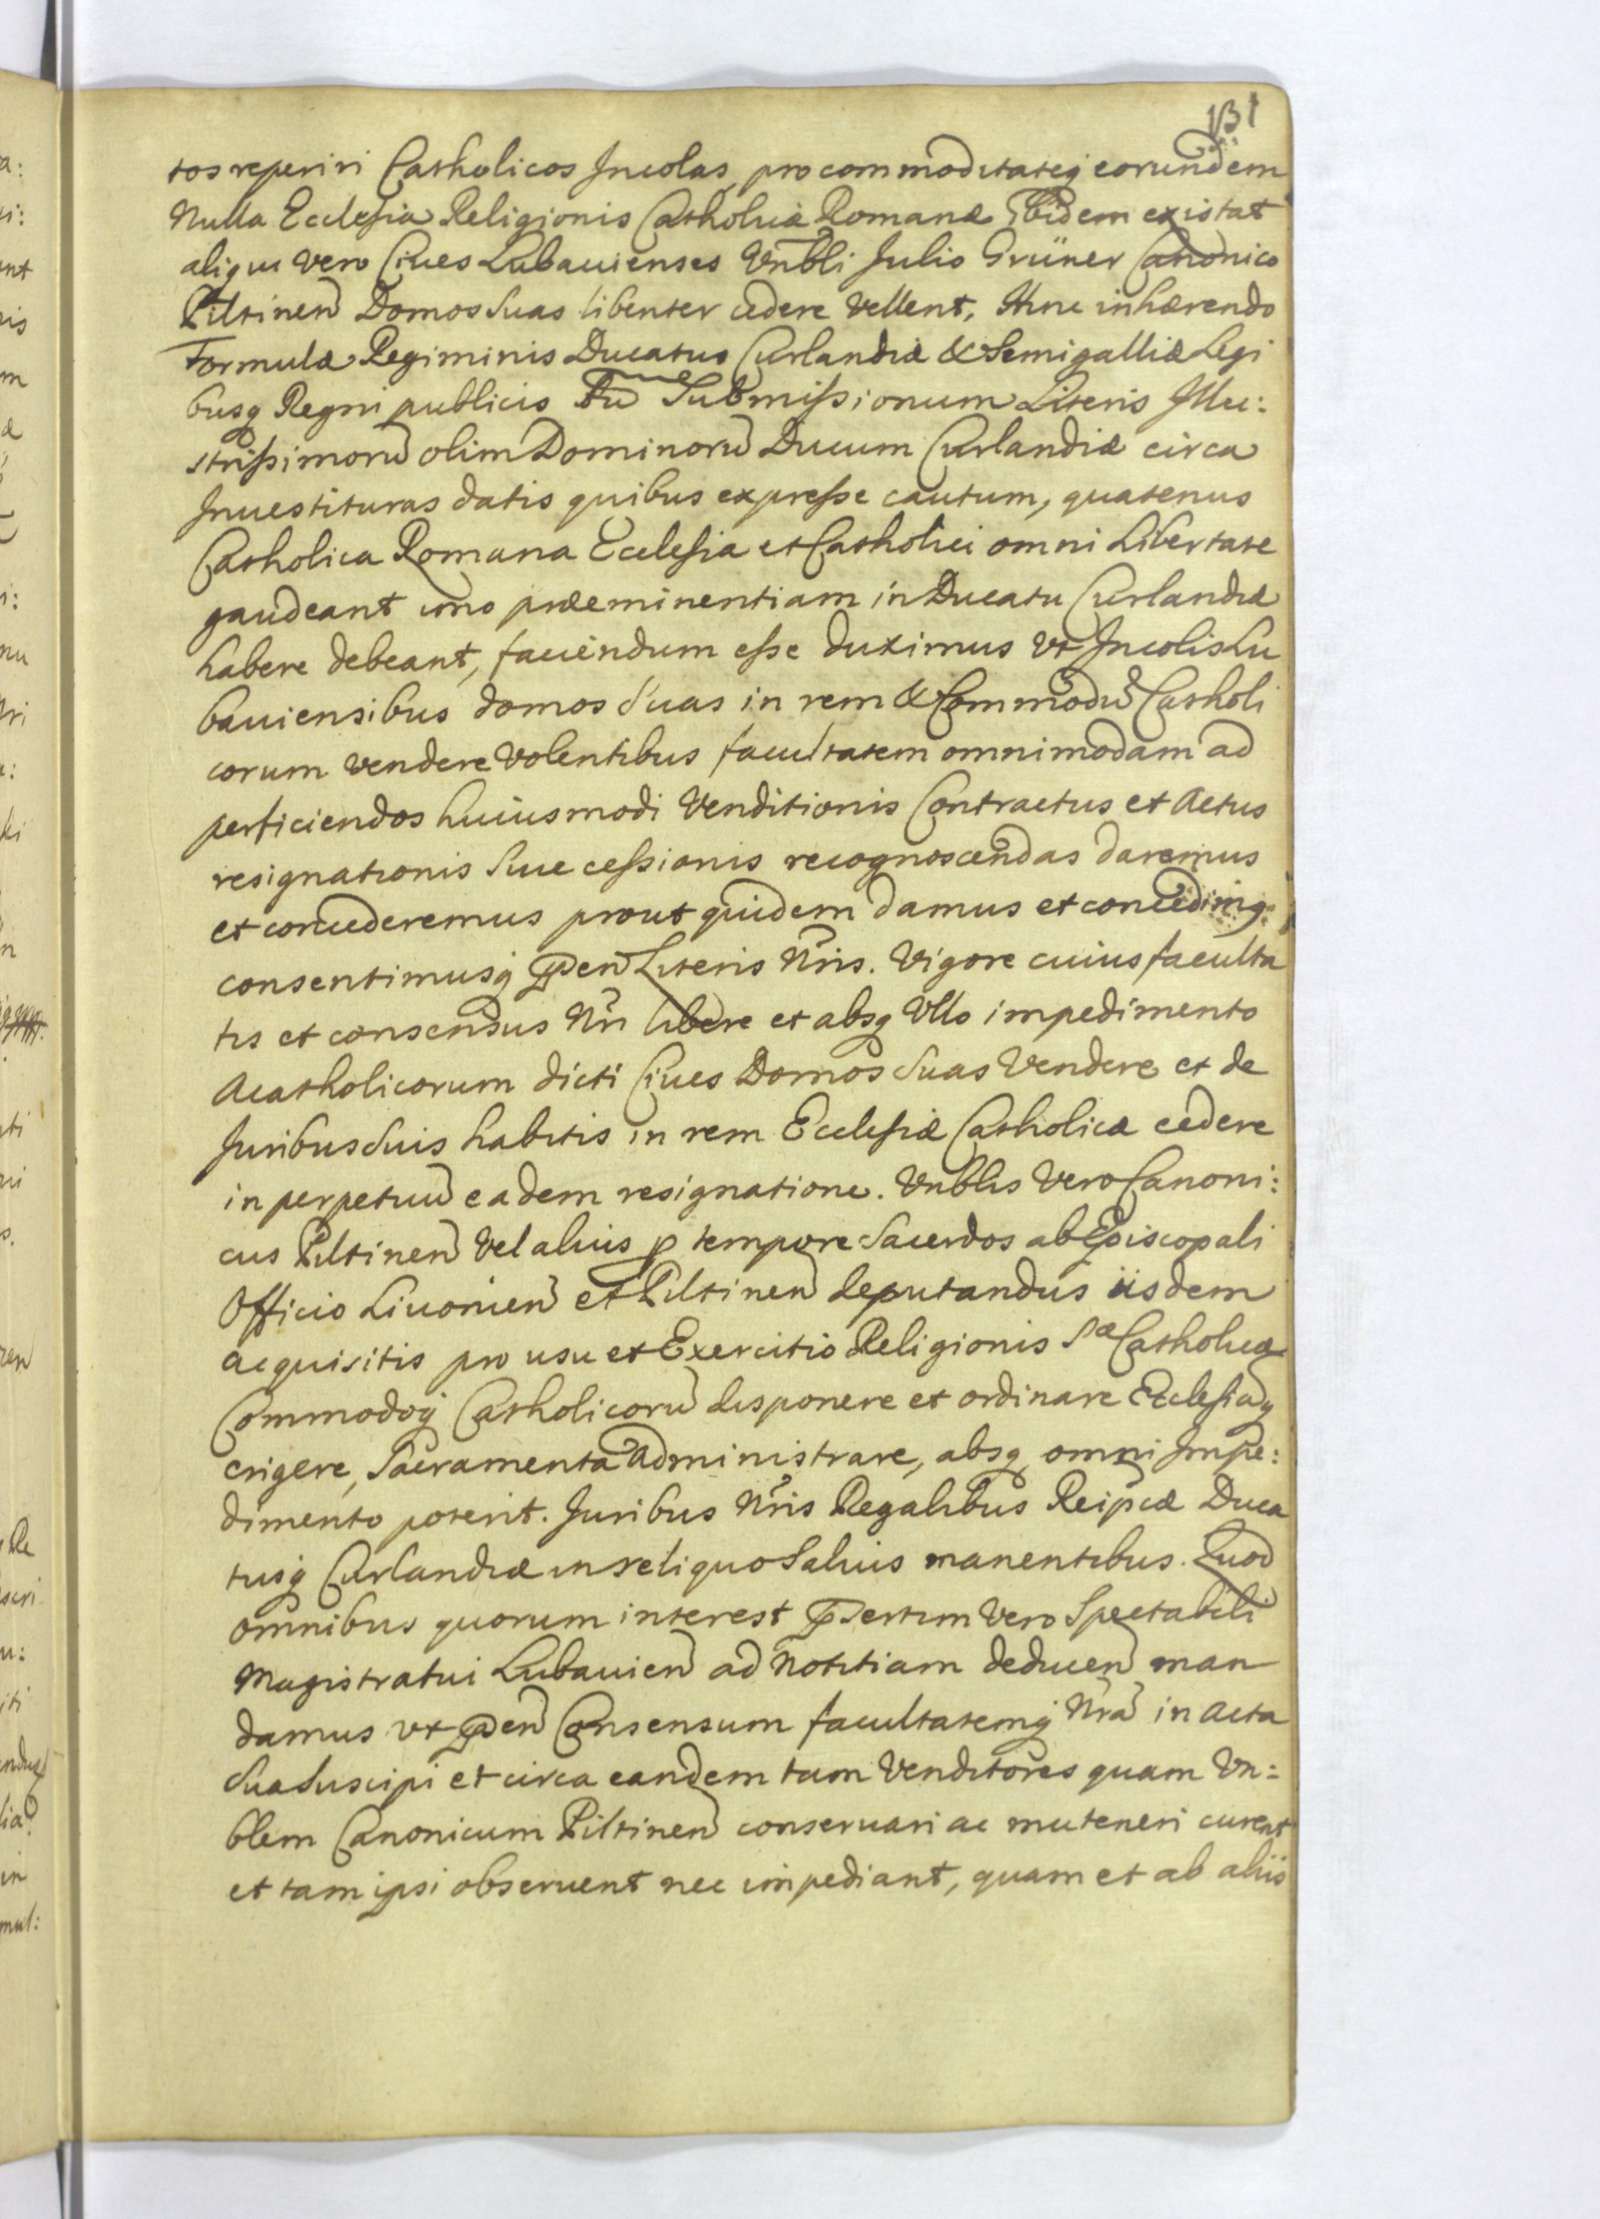 131
tos reperiri Catholicos Incolas, pro commoditateq eorundem
Nulla Ecclesia Religionis Catholicæ Romanæ Ibidem existat
aliqui vero Ciues Lubauienses Vnbli Julio Grüner Canonico
Piltinen Domos suas libenter cedere vellent, Hinc inhærendo
Formulæ Regiminis Ducatus Curlandiæ & Semigalliæ Legi
busq Regni publicis Submissionum Literis Illu:
strissimorū olim Dominorū Ducum Curlandiæ circa
Inuestituras datis quibus expresse cautum, quatenus
Catholica Romana Ecclesia et Catholici omni Libertate
gaudeant imo præeminentiam in Ducatu Curlandiæ
habere debeant, faciendum esse duximus vt Incolis Lu
bauiensibus domos suas in rem & Commodū Catholi
corum vendere volentibus facultatem omnimodam ad
perficiendos huiusmodi Venditionis Contractus et Actus
resignationis siue cessionis recognoscendas daremus
et concederemus prout quidem damus et concedimq
consentimusq pñtten Literis Nris. Vigore cuius faculta
tis et consensus Nri libere et absq Vllo impedimento
Acatholicorum dicti Ciues Domos suas Vendere et de
Juribus suis habitis in rem Ecclesiæ Catholicæ cedere
in perpetuū eadem resignatione. Vnblis Vero Canoni:
cus Piltinen Vel alius p tempore Sacerdos ab Episcopali
Officio Liuonien et Piltinen deputandus iisdem
acquisitis pro usu et Exercitio Religionis Sæ Catholicæ
Commodoq Catholicorū disponere et ordinare Ecclesiaq
erigere, Sacramenta administrare, absq omni Impe:
dimento poterit. Juribus Nris Regalibus Reipcæ Duca
tusq Curlandiæ in reliquo Saluis manentibus. Quod
omnibus quorum interest psertim Vero Spectabili
Magistratui Lubauien ad Notitiam deducen man
damus vt pen Consensum facultatemq Nrā in Acta
sua suscipi et circa eandem tam Venditores quam Vn:
blem Canonicum Piltinen conseruari ac muteneri curent
et tam ipsi obseruent nec impediant, quam et ab aliis